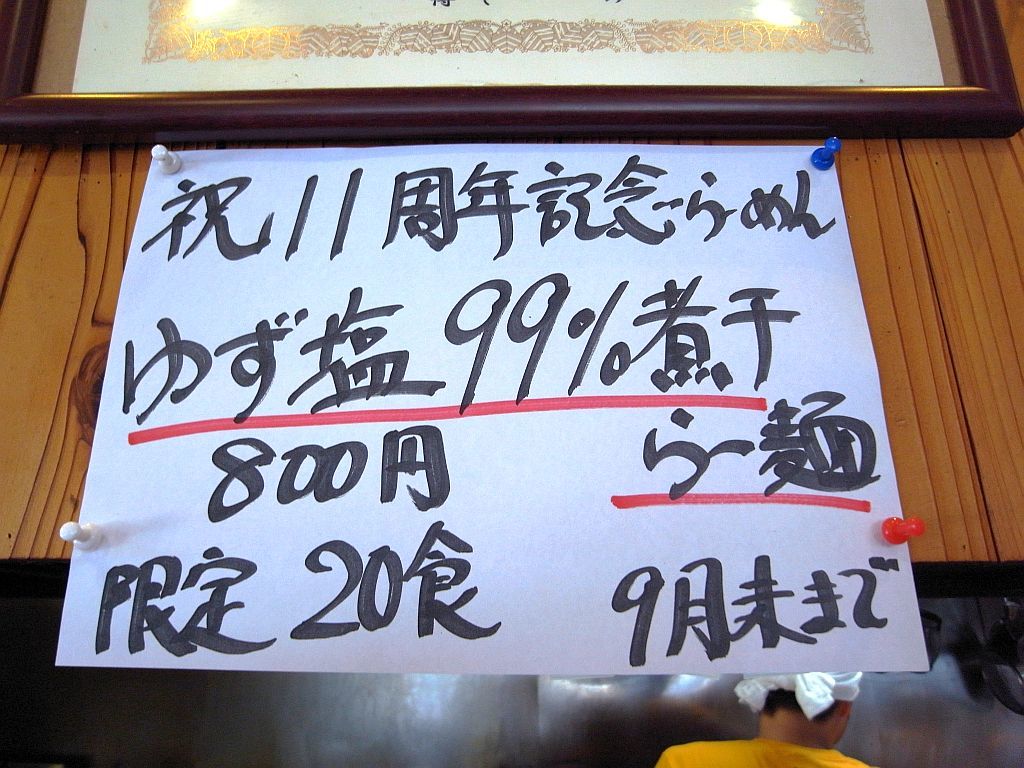 祝11周年記念らーめん
ゆず塩99%煮干
らー麺
800円
限定20食
9月末まで